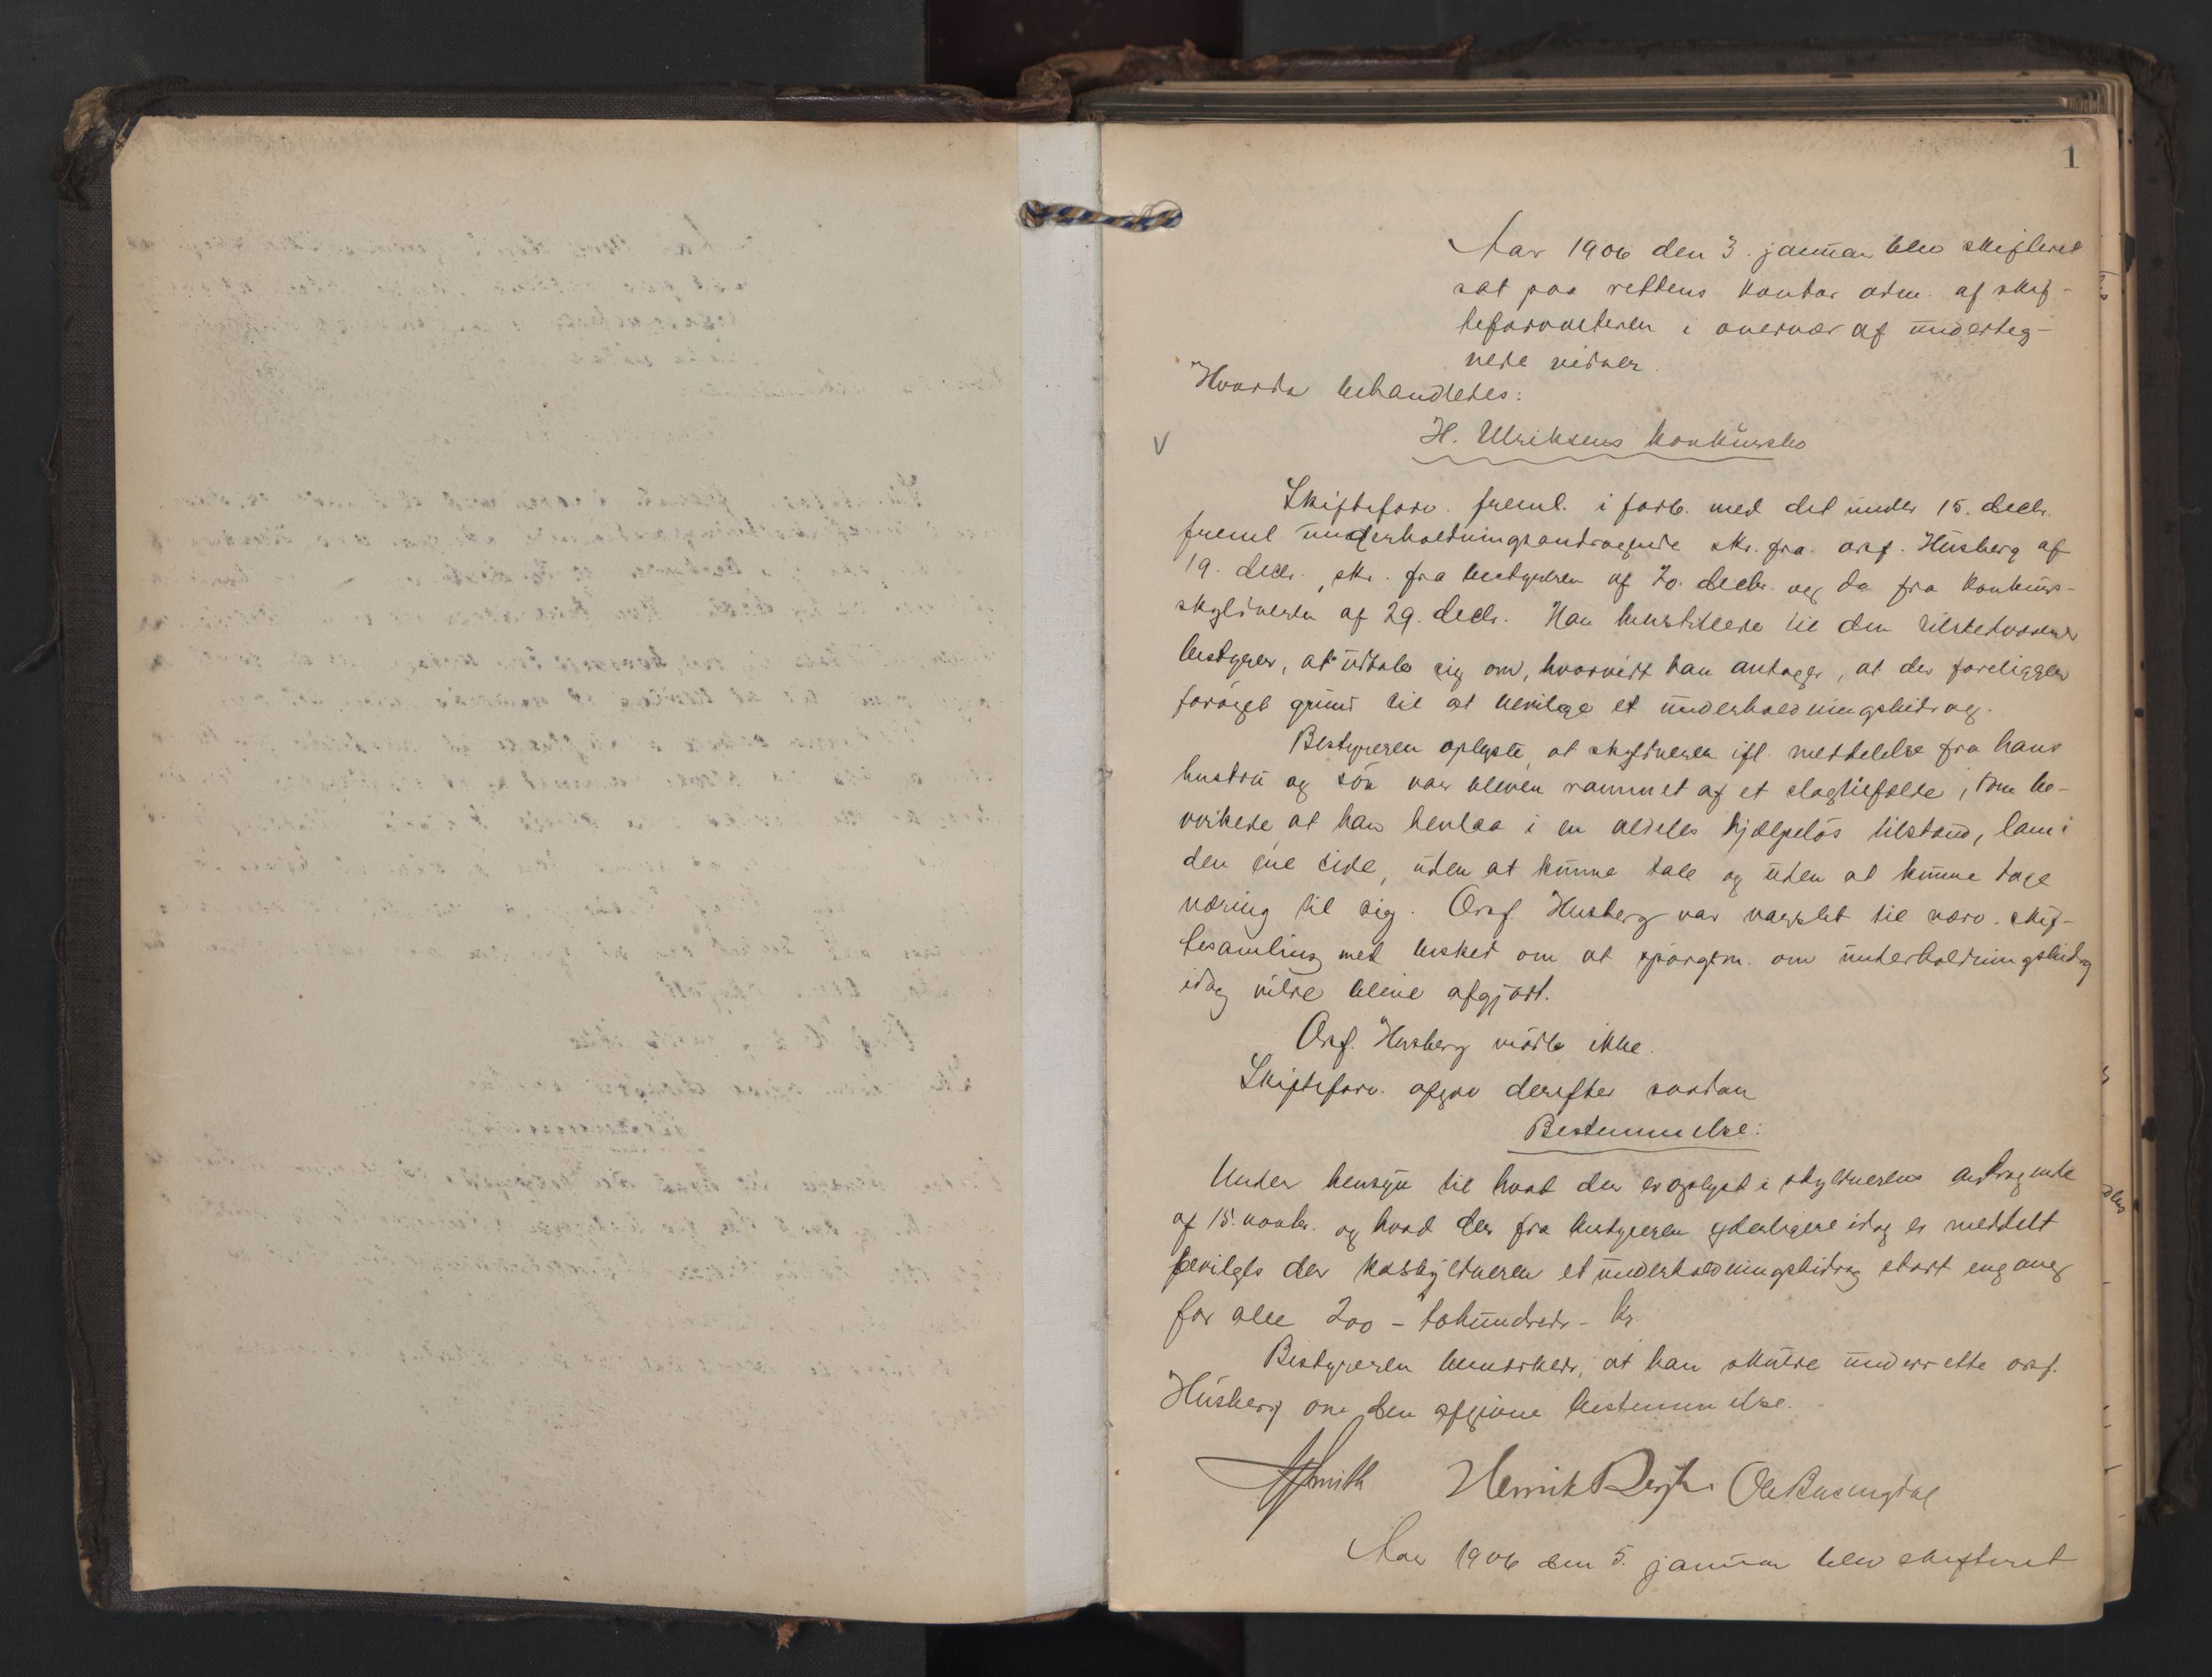 1
Aar 1906 den 3. januar blev skifteret
sat paa rettens kontor adm. af skif-
teforvalteren i overvær af underteg-
nede vidner.
Hvorda behandledes:
V
H. Ulriksens konkursbo
Skifteforv. freml. i forb. med det under 15. decbr.
freml underholdningsandragende skr. fra orsf. Husberg af
19. decbr., skr. fra bestyreren af 20. decbr. og do fra konkurs-
skyldneren af 29. decbr. Han henstillede til den tilstedværende
bestyrer, at udtale sig om, hvorvidt han antager, at der foreligger
forøget grund til at bevilge et underholdningsbidrag.
Bestyreren oplyste, at skyldneren ifl. meddelelse fra hans
hustru og søn var bleven rammet af et slagtilfælde, som be-
virkede, at han henlaa i en aldeles hjælpeløs tilstand, lam i
den ene side, uden at kunne tale og uden at kunne tage
næring til sig. Orsf. Husberg var varslet til nærv. skif-
tesamling med besked om at spørgsm. om underholdningsbidrag
idag vilde blive afgjort.
Orsf. Husberg mødte ikke.
Skifteforv. afgav derefter saadan
Bestemmelse:
Under hensyn til hvad der er oplyst i skyldnerens andragende
af 15. novbr. og hvad der fra bestyreren yderligere idag er meddelt
bevilges der koskyldneren et underholdningsbidrag stort engang
for alle 200 - tohundrede - kr.
Bestyreren bemærkede, at han skulde underrette orsf.
Husberg om den afgivne bestemmelse.
Smith Henrik Ole
Aar 1906 den 5. januar blev skifteret